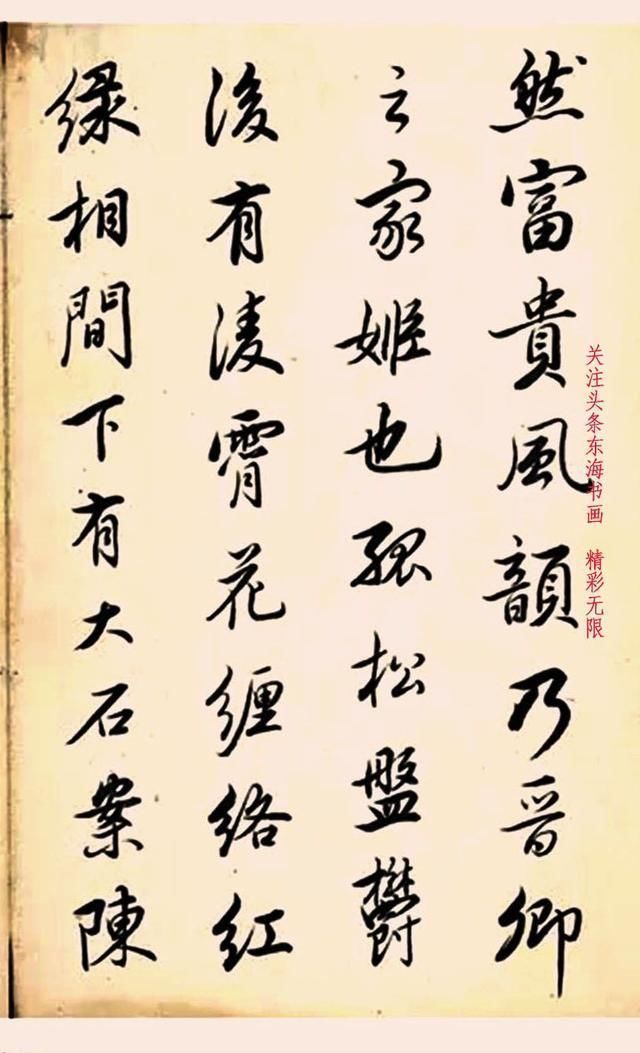 然富貴風韻乃晉卿
之家姬也孤松盤欝
後有凌霄花缠络红
緑相間下有大石案陳
关注头条东海书画 精彩无限